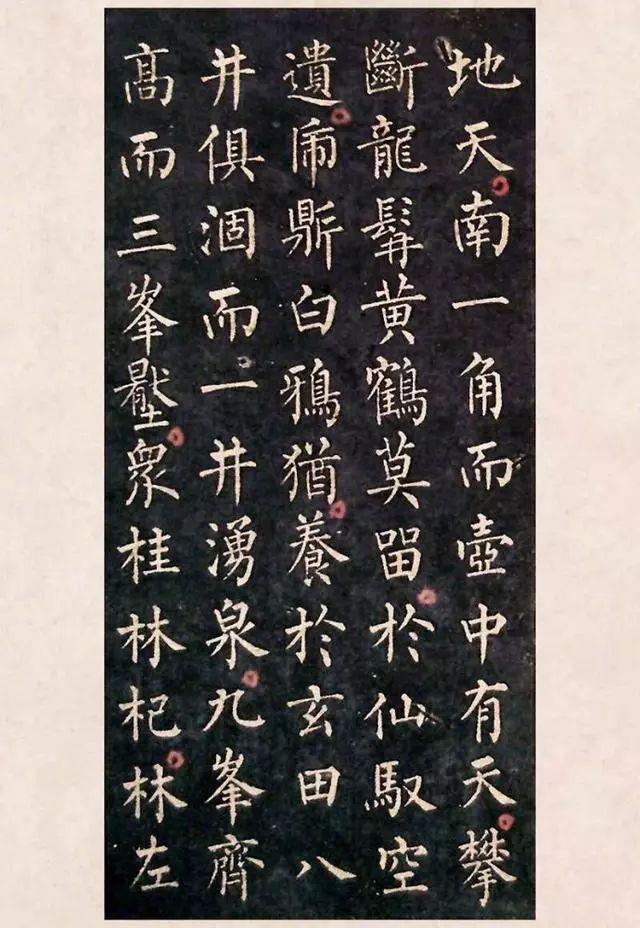 地天南一角而壺中有天攀
斷龍髯黃鶴莫留於仙馭空
遺鼎白鴉猶養於玄田八
井俱涸而一井湧泉九峯齊
高而三峯壓眾桂林杞林左